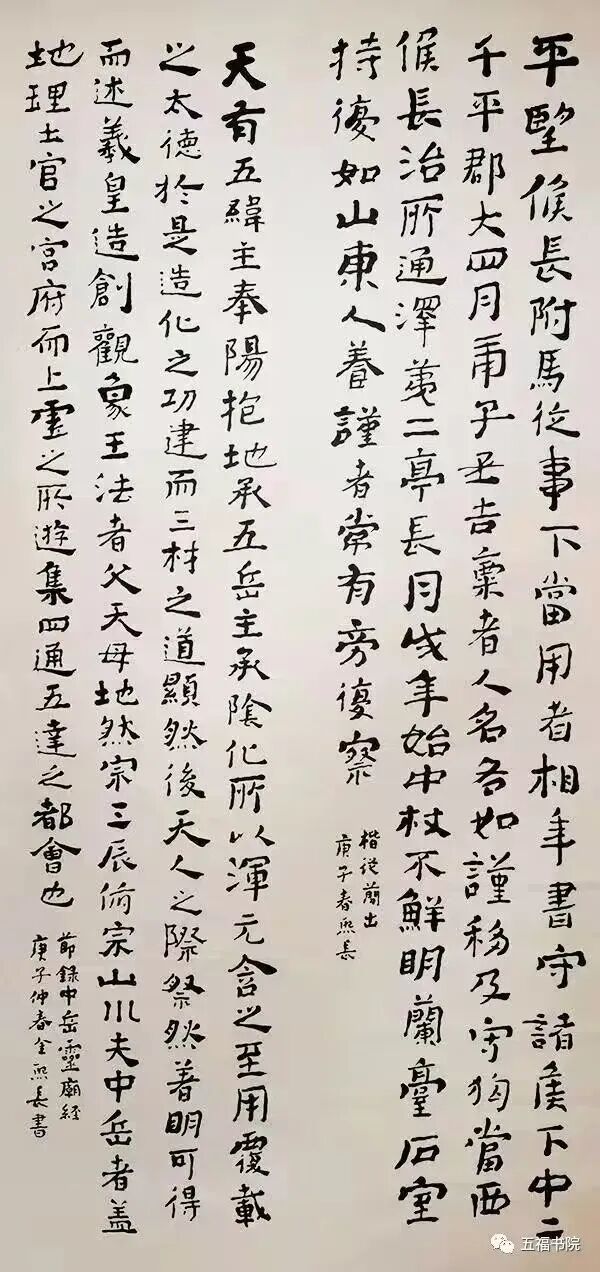 平望候長附馬從事下當用者相年書守諸侯下中二
千平郡大四月甫子丑吉稟者人名各如謹移及守狗當西
候長治所通澤第二亭長月戌年始中杖不鮮明蘭臺石室
持復如山東人養謹者常有旁復察
楷從簡出
庚子春熙長
天有五緯主奉陽抱地承五岳主承陰化所以渾元含之至用覆載
之太德於是造化之功建而三材之道顯然後天人之際祭然著明可得
而述羲皇造創觀象王法者父天母地然宗三辰俯宗山川夫中岳者蓋
地理土官之宮府而上靈之所遊集四通五達之都會也
節錄中岳靈廟經
庚子仲春金熙長書
五福书院